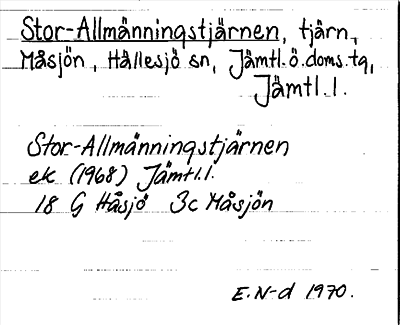 Stor-Allmänningstjärnen, tjärn,
Måsjön, Hällesjö sn, Jämtl. ö. doms. tg,
Jämtl. l.
Stor-Allmänningstjärnen
ek (1968) Jämtl.
18 G Håsjö 3c Måsjön
E. N-d 1970.